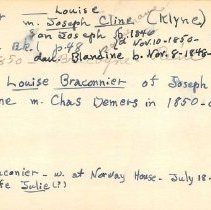 Louise
m. Joseph Cline (Klyne)
son Joseph b. 1846
Bk. 1 p. 48 d. Nov. 10 - 1850 -
dau. Blandine b. Nov. 8 - 1848 -
Louise Braconnier of Joseph
ne m. Chas Demers in 1850 -
conier - w. at Norway House - July 18 -
fe Julie (?)